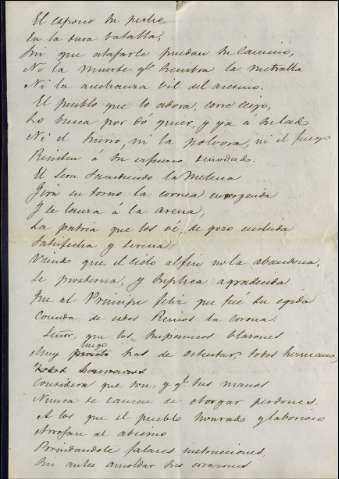 El esposo su pecho
en la dura batalla,
Sin que atajarle puedan su camino,
No la muerte q.e siembra la metralla
Ni la asechanza vil del asesino.
El pueblo que lo adora, corre ciego,
Lo busca por do quier, y ya á su lado
Ni el hierro, ni la polvora, ni el fuego
Rinden á su esfuerzo denodado.
El leon sacudiendo la melena
Gira en torno la cornea
Y se lanza á la arena,
La patria que los vé, de gozo
Satisfecha y serena
Viendo que el cielo al fin no la abandona,
Se prosterna, y suplica
Que al Principe feliz que fué su egida
Conceda de estos Reinos la corona.
Señor, que los Supremos blasones
Muy pronto luego has de ostentar, todos hermanos,
Todos
Considera que son, y q.e tus manos
Nunca se cansen de otorgar perdones.
A los que el pueblo honrado y laborioso
Arrojan al abismo
Brindandole falaces instrucciones
Sin antes amoldar sus corazones